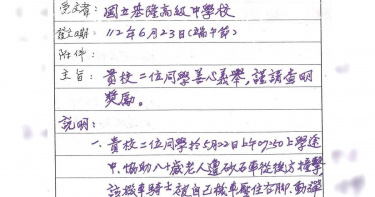 受文者: 國立基隆高級中學校
發文日期: 112年6月23日(端午節)
附件:
主旨: 貴校二位同學善心義舉,謹請查明
獎勵。
說明:
一、貴校二位同學於5月22日上午07:50上學途
中,協助八十歲老人遭砂石車從後方撞擊,
該機車騎士被自己機車壓住右腳,動彈